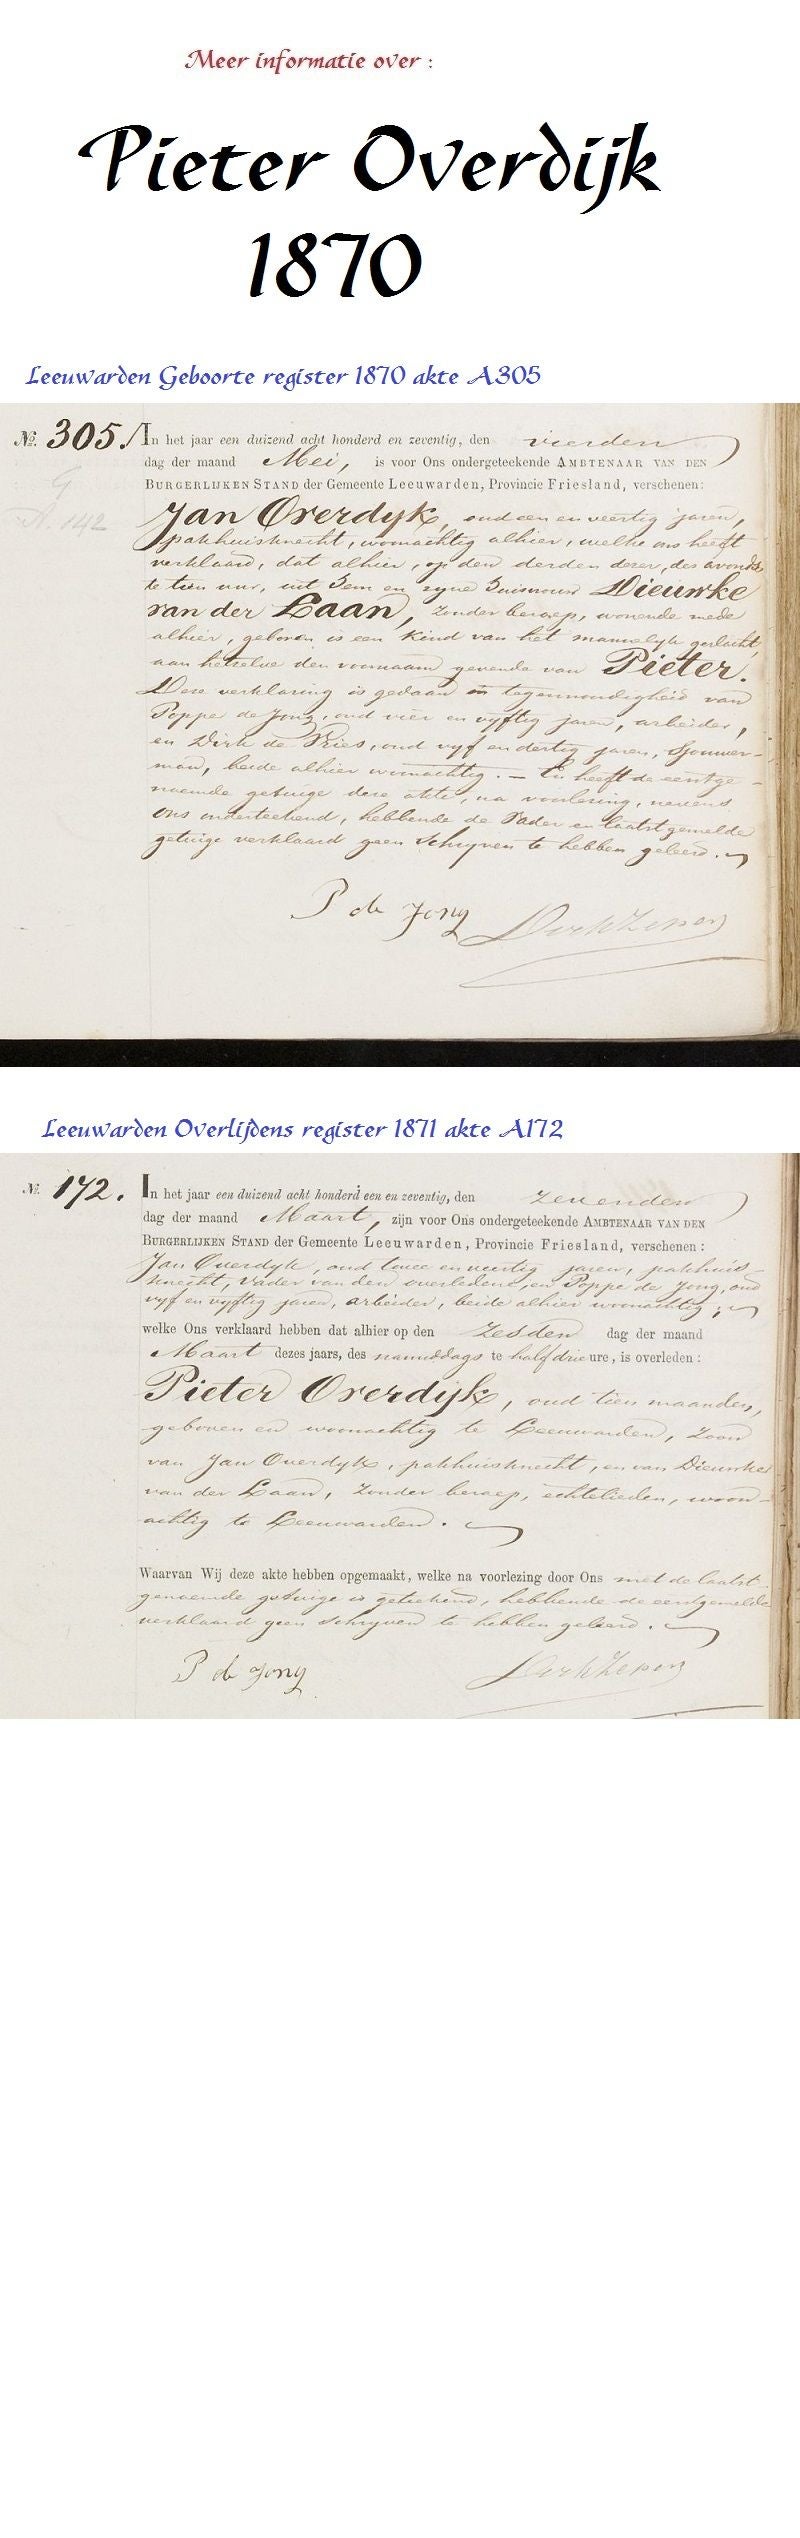 Meer informatie over :
Pieter Overdijk
1870
Leeuwarden Geboorte register 1870 akte A305
No. 305. In het jaar een duizend acht honderd en zeventig, den vierden
dag der maand Mei, is voor Ons ondergeteekende AMBTENAAR VAN DEN
BURGERLIJKEN STAND der Gemeente Leeuwarden, Provincie Friesland, verschenen:
Jan Overdyk, oud een en veertig jaren,
A. 142
pakhuisknecht, woonachtig alhier, welke ons heeft
verklaard, dat alhier, op den derden dezer, des avonds
te tien uur, uit hem en zyne huisvrouw Dieuwke
van der Laan, zonder beroep, wonende mede
alhier, geboren is een kind van het mannelyk geslacht,
aan hetzelve den voornaam gevende van Pieter.
Deze verklaring is gedaan in tegenwoordigheid van
Poppe de Jong, oud vier en vyftig jaren, arbeider,
en Dirk de Vries, oud vyf en dertig jaren, sjouwer-
man, beide alhier woonachtig. — En heeft de eerstge-
noemde getuige deze akte, na voorlezing, nevens
ons onderteekend, hebbende de Vader en laatstgemelde
getuige verklaard geen schryven te hebben geleerd.
P de Jong
Leeuwarden Overlijdens register 1871 akte A172
No. 172. In het jaar een duizend acht honderd een en zeventig, den zevenden
dag der maand Maart, zijn voor Ons ondergeteekende AMBTENAAR VAN DEN
BURGERLIJKEN STAND der Gemeente Leeuwarden, Provincie Friesland, verschenen:
Jan Overdyk, oud twee en veertig jaren, pakhuis-
knecht, vader van den overledene, en Poppe de Jong, oud
vyf en vyftig jaren, arbeider, beide alhier woonachtig;
welke Ons verklaard hebben dat alhier op den zesden dag der maand
Maart dezes jaars, des namiddags te half drie ure, is overleden:
Pieter Overdijk, oud tien maanden,
geboren en woonachtig te Leeuwarden, zoon
van Jan Overdyk, pakhuisknecht, en van Dieuwke
van der Laan, zonder beroep, echtelieden, woon-
achtig te Leeuwarden.
Waarvan Wij deze akte hebben opgemaakt, welke na voorlezing door Ons met de laatst-
genoemde getuige is geteekend, hebbende de eerstgemelde
verklaard geen schryven te hebben geleerd.
P de Jong